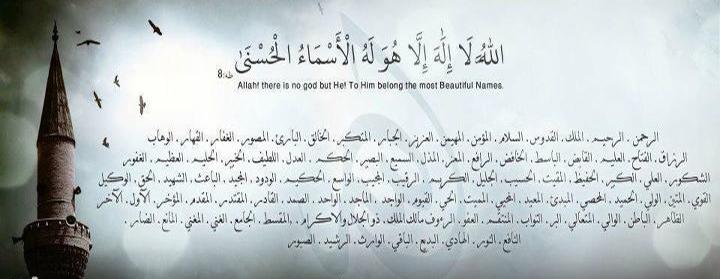 اللَّهُ لَا إِلَٰهَ إِلَّا هُوَ لَهُ الْأَسْمَاءُ الْحُسْنَىٰ
طه:8
Allah! there is no god but He! To Him belong the most Beautiful Names.
الرحمن . الرحيم . الملك . القدوس . السلام . المؤمن . المهيمن . العزيز . الجبار . المتكبر . الخالق . البارئ . المصور . الغفار . القهار . الوهاب
الرزاق . الفتاح . العليم . القابض . الباسط . الخافض . الرافع . المعز . المذل . السميع . البصير . الحكم . العدل . اللطيف . الخبير . الحليم . العظيم . الغفور
الشكور . العلي . الكبير . الحفيظ . المقيت . الحسيب . الجليل . الكريم . الرقيب . المجيب . الواسع . الحكيم . الودود . المجيد . الباعث . الشهيد . الحق . الوكيل
القوي . المتين . الولي . الحميد . المحصي . المبدئ . المعيد . المحيي . المميت . الحي . القيوم . الواجد . الماجد . الواحد . الصمد . القادر . المقتدر . المقدم . المؤخر . الأول . الآخر
الظاهر . الباطن . الوالي . المتعالي . البر . التواب . المنتقم . العفو . الرءوف . مالك الملك . ذو الجلال والاكرام . المقسط . الجامع . الغني . المغني . المانع . الضار .
النافع . النور . الهادي . البديع . الباقي . الوارث . الرشيد . الصبور